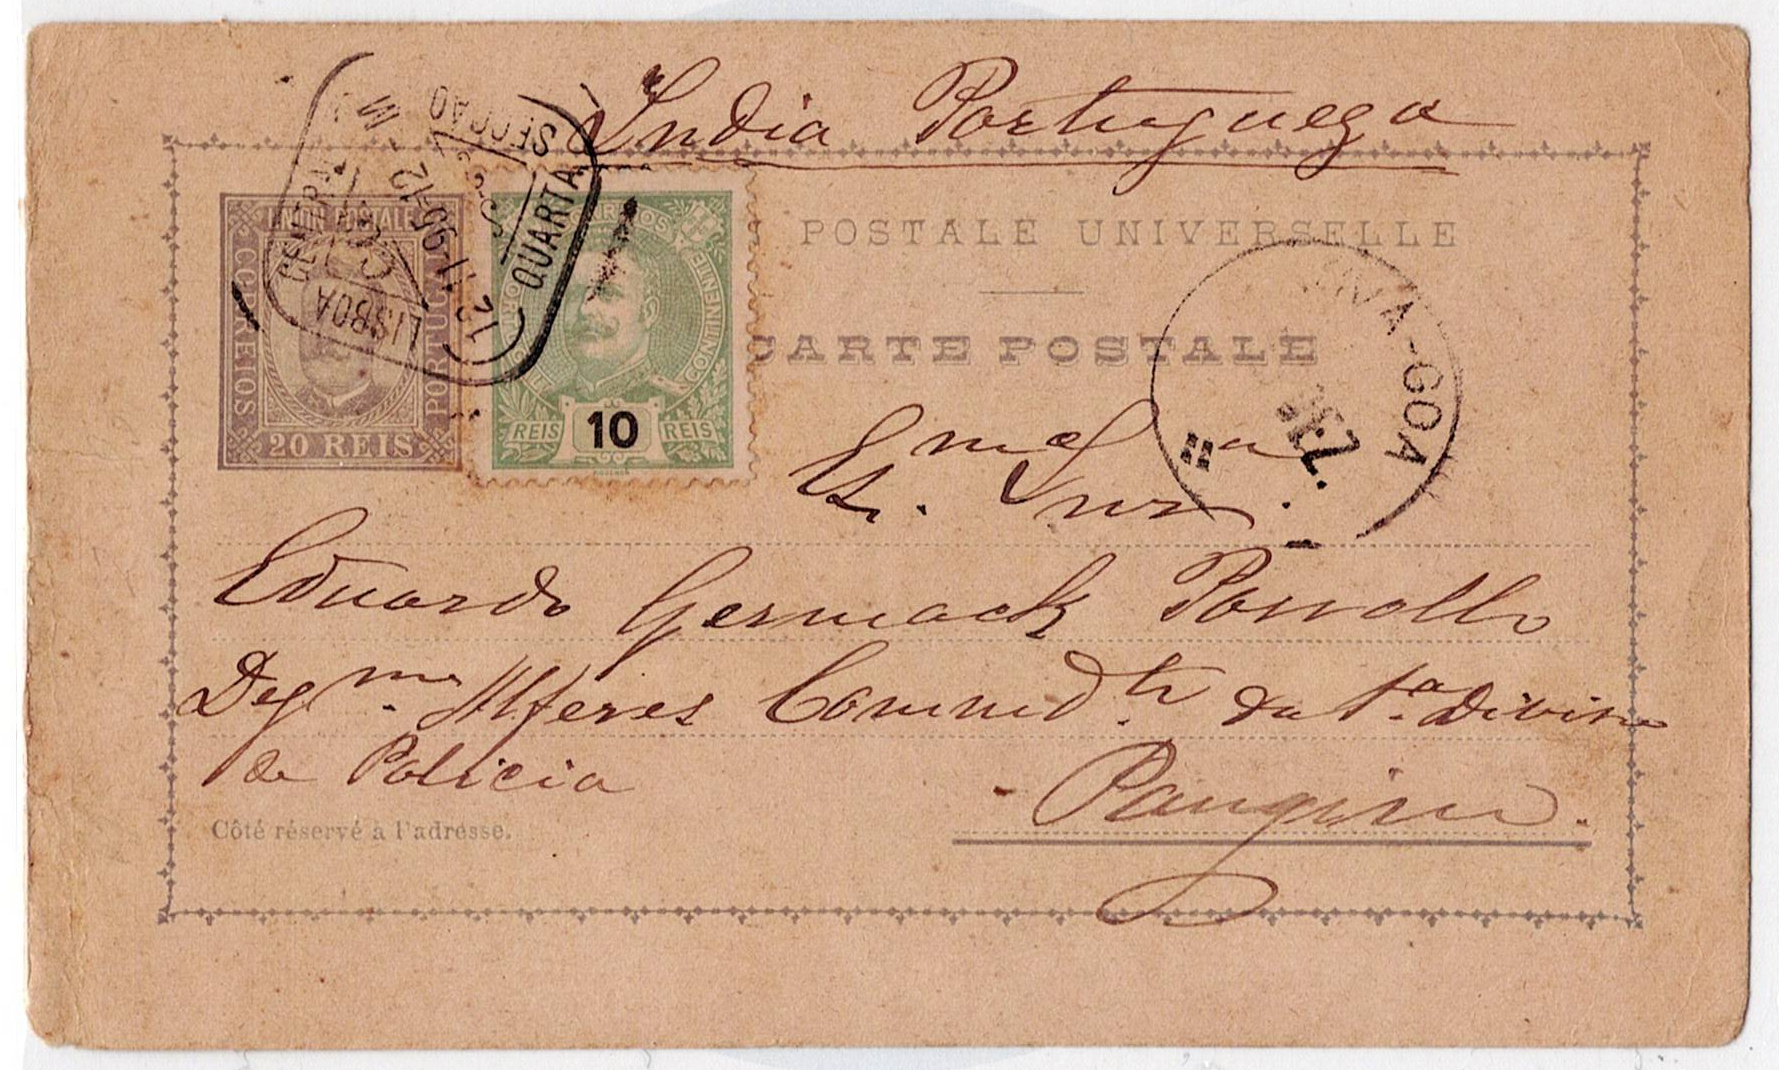 India Portugueza
UNION POSTALE
CORREIOS
PORTUGAL
20 REIS
CORREIOS
CONTINENTE
REIS 10 REIS
LISBOA
CENTRAL
QUARTA
SECCAO
POSTALE UNIVERSELLE
CARTE POSTALE
NOVA-GOA
DEZ.
Exmo
Snr.
Eduardo Germack Possollo
Degmo. Alferes Commdte da 1.a Divisão
de Policia
Pangim.
Côté réservé à l'adresse.